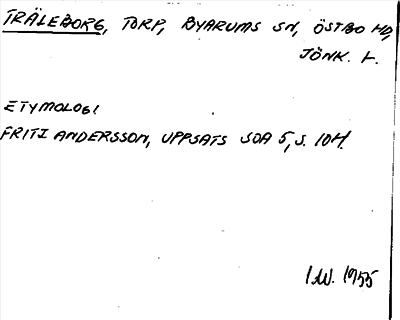 TRÄLEBORG, TORP, BYARUMS SN, ÖSTBO HD,
JÖNK. L.
ETYMOLOGI
FRITZ ANDERSSON, UPPSATS SOA 5, S. 10 H.
I.W. 1955